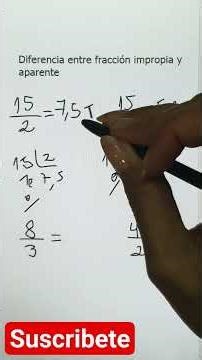 Diferencia entre fracción impropia y
aparente
15/2 = 7,5 I 15
15 | 2
7,5
0
8/3 = 4
2
Suscribete